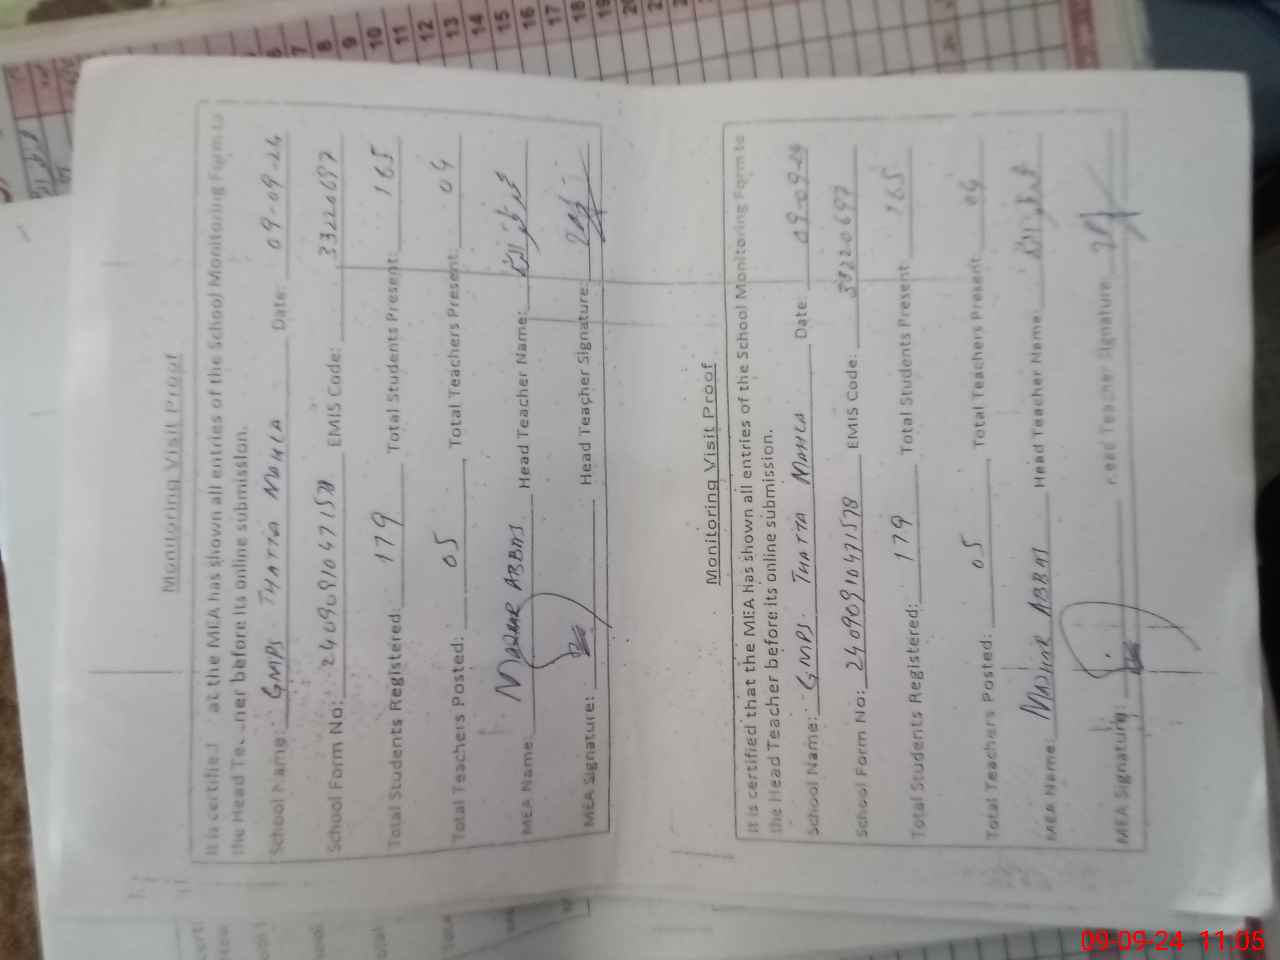 Monitoring Visit Proof
It is certified at the MEA has shown all entries of the School Monitoring Form to
the Head Teacher before its online submission.
School Name: GMPS THATTA MAHLA Date: 09-09-24
School Form No: 24090910471578 EMIS Code: 33220697
Total Students Registered: 179 Total Students Present: 165
Total Teachers Posted: 05 Total Teachers Present: 04
MEA Name: MAZHAR ABBAS Head Teacher Name:
MEA Signature: Head Teacher Signature:
Monitoring Visit Proof
It is certified that the MEA has shown all entries of the School Monitoring Form to
the Head Teacher before its online submission.
School Name: GMPS. THATTA MAHLA Date: 09-09-24
School Form No: 24090910471578 EMIS Code: 33220697
Total Students Registered: 179 Total Students Present: 165
Total Teachers Posted: 05 Total Teachers Present: 04
MEA Name: MAZHAR ABBAS Head Teacher Name:
MEA Signature: Head Teacher Signature:
6
7
8
9
10
11
12
13
14
15
16
17
18
19
20
09-09-24 11:05